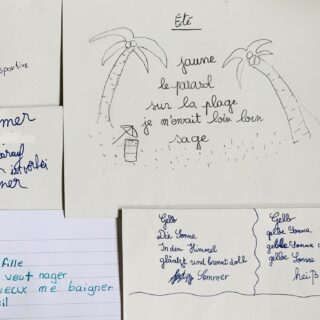 Eté
jaune
le parard
sur la plage
je m'envait loin loin
sage
mer
ist vorbei
ner
fille
veut nager
veux me baigner
il
Gelb
Die Sonne
In den Himmel
glänzt und brennt doll
Sommer
Gelb
gelbe Sonne
gelbe Sonne
gelbe Sonne
heiß